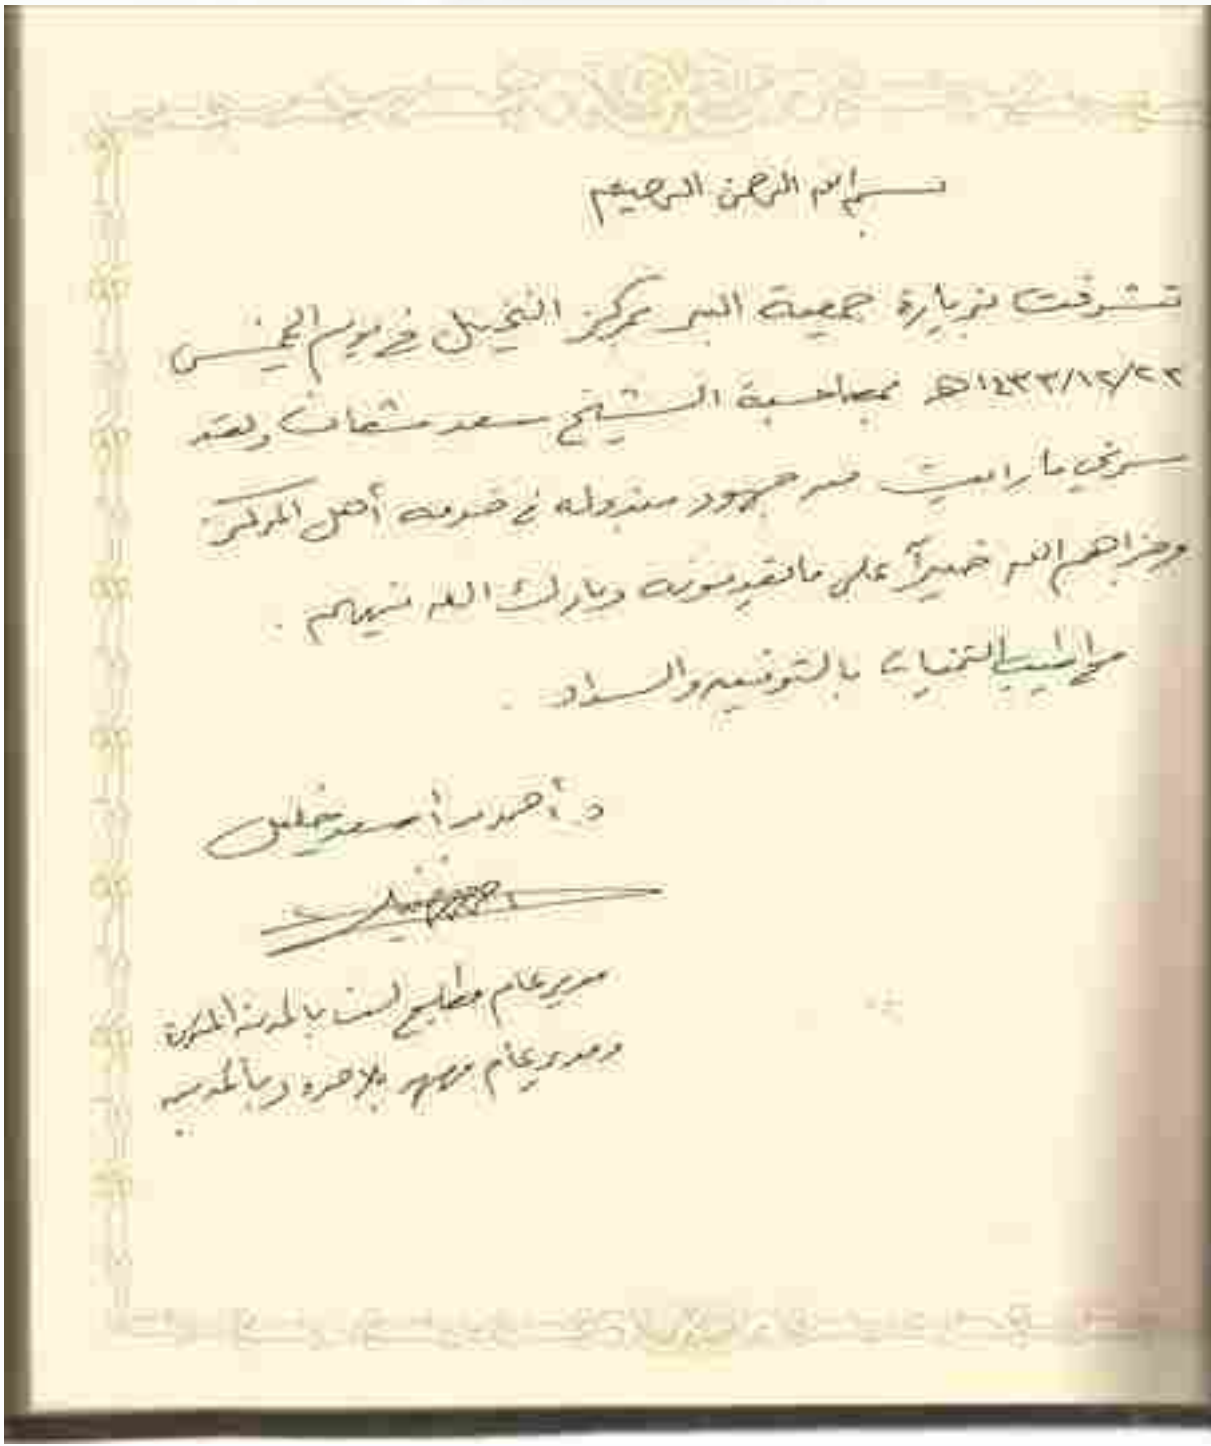 بسم الله الرحمن الرحيم
تشرفت بزيارة جمعية البر بمركز النخيل في يوم الخميس
١٤٣٣/١٢/٢٣هـ بمصاحبة الشيخ سعد مشعان ولقد
سرني ما رأيت من جهود مبذوله في خدمه أهل المركز
وجزاهم الله خيراً على ما يقدمونه وبارك الله فيهم .
مع أطيب التمنيات بالتوفيق والسداد .
د . أحمد أسعد خليل
مدير عام مطابع بالمدينة المنورة
ومدير عام